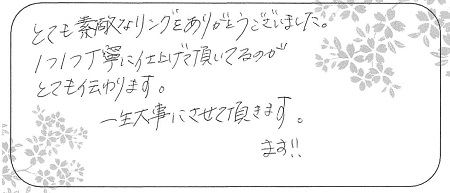 とても素敵なリングをありがとうございました。
1つ1つ丁寧に仕上げて頂いてるのが
とても伝わります。
一生大事にさせて頂きます。
ます!!